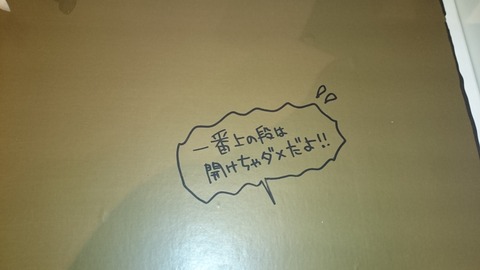 一番上の段は
開けちゃダメだよ!!